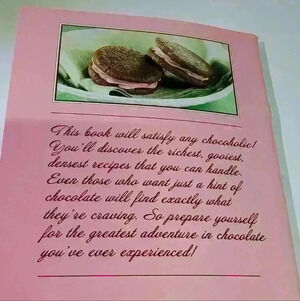 This book will satisfy any chocoholic!
You'll discover the richest, gooiest,
densest recipes that you can handle.
Even those who want just a hint of
chocolate will find exactly what
they're craving. So prepare yourself
for the greatest adventure in chocolate
you've ever experienced!